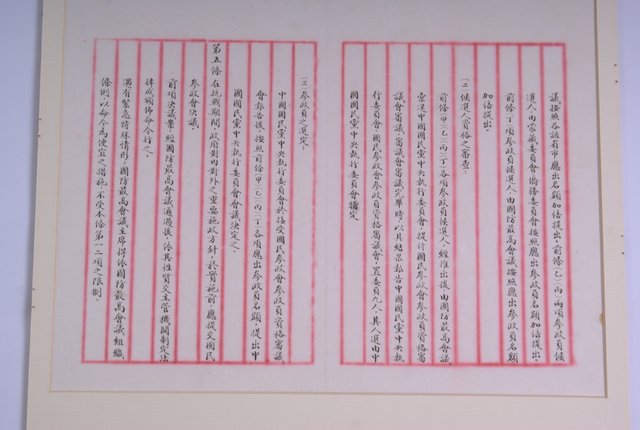 議按照各該省市應出名額加倍提出，前條（乙）（丙）兩項參政員候
選人由蒙藏委員會僑務委員會按照應出參政員名額加倍提出，
前條（丁）項參政員候選人，由國防最高會議按照應出參政員名額
加倍提出。
（二）候選人資格之審查。
前條（甲）（乙）（丙）（丁）各項參政員候選人，經推出後由國防最高會議
彙送中國國民黨中央執行委員會，提付國民參政會參政員資格審
議會審議，審議會審議完畢時，以其結果報告中國國民黨中央執
行委員會，國民參政會參政員資格審議會，置委員九人，其人選由中
國國民黨中央執行委員會指定
（三）參政員之選定。
中國國民黨中央執行委員會於接受國民參政會參政員資格審議
會報告後，按照前條（甲）（乙）（丙）（丁）各項應出參政員名額，提出中
國國民黨中央執行委員會會議決定之。
第五條 在抗戰期間，政府對內對外之重要施政方針，於實施前，應提交國民
參政會決議。
前項決議案，經國防最高會議通過後，依其性質交主管機關制定法
律或頒佈命令行之。
遇有緊急特殊情形，國防最高會議主席得依國防最高會議組織
條例，以命令為便宜之措施，不受本條第一二項之限制。